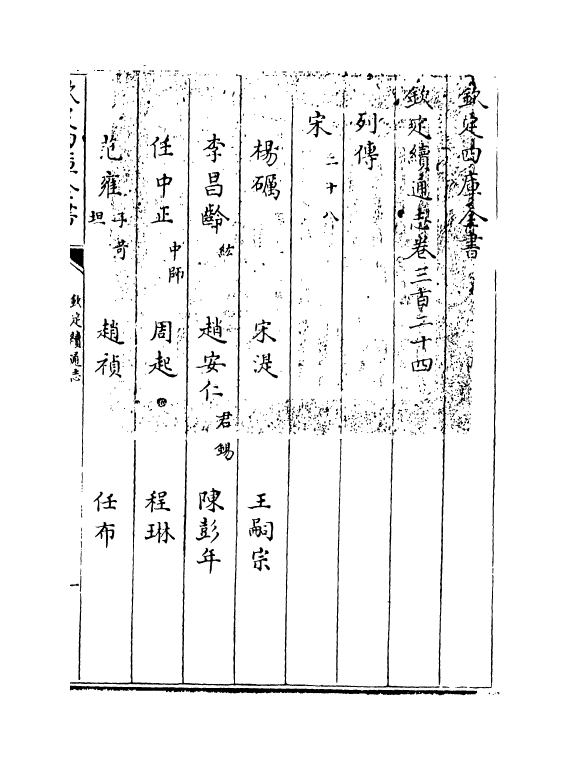 欽定四庫全書
欽定續通志卷三百二十四
列傳
宋二十八
楊礪 宋湜 王嗣宗
李昌齡紘 趙安仁君錫 陳彭年
任中正中師 周起 程琳
范雍子奇坦 趙禎 任布
欽定四庫全書
欽定續通志
一